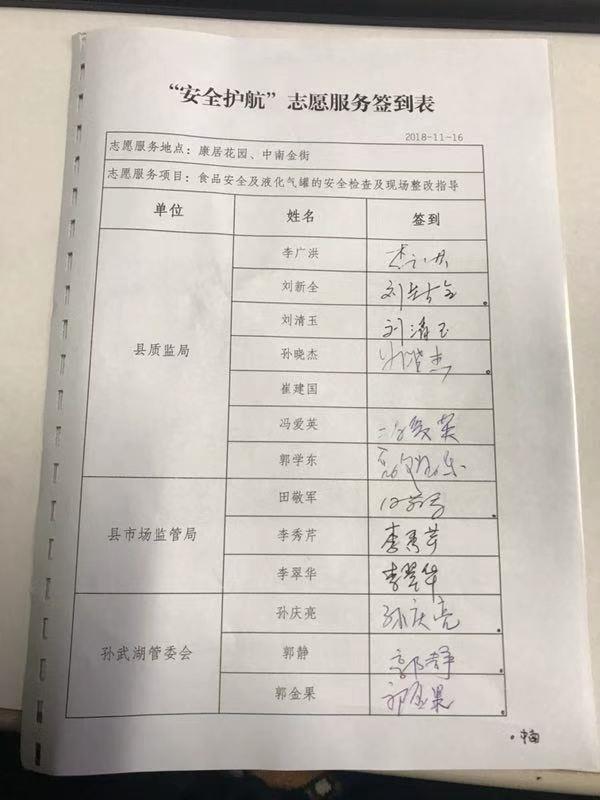 “安全护航”志愿服务签到表
2018-11-16
志愿服务地点：康居花园、中南金街
志愿服务项目：食品安全及液化气罐的安全检查及现场整改指导
单位 姓名 签到
县质监局
李广洪
刘新全 刘新全
刘清玉 刘清玉
孙晓杰 孙晓杰
崔建国
冯爱英 冯爱英
郭学东
县市场监管局
田敬军
李秀芹 李秀芹
李翠华 李翠华
孙武湖管委会
孙庆亮 孙庆亮
郭静 郭静
郭金果 郭金果